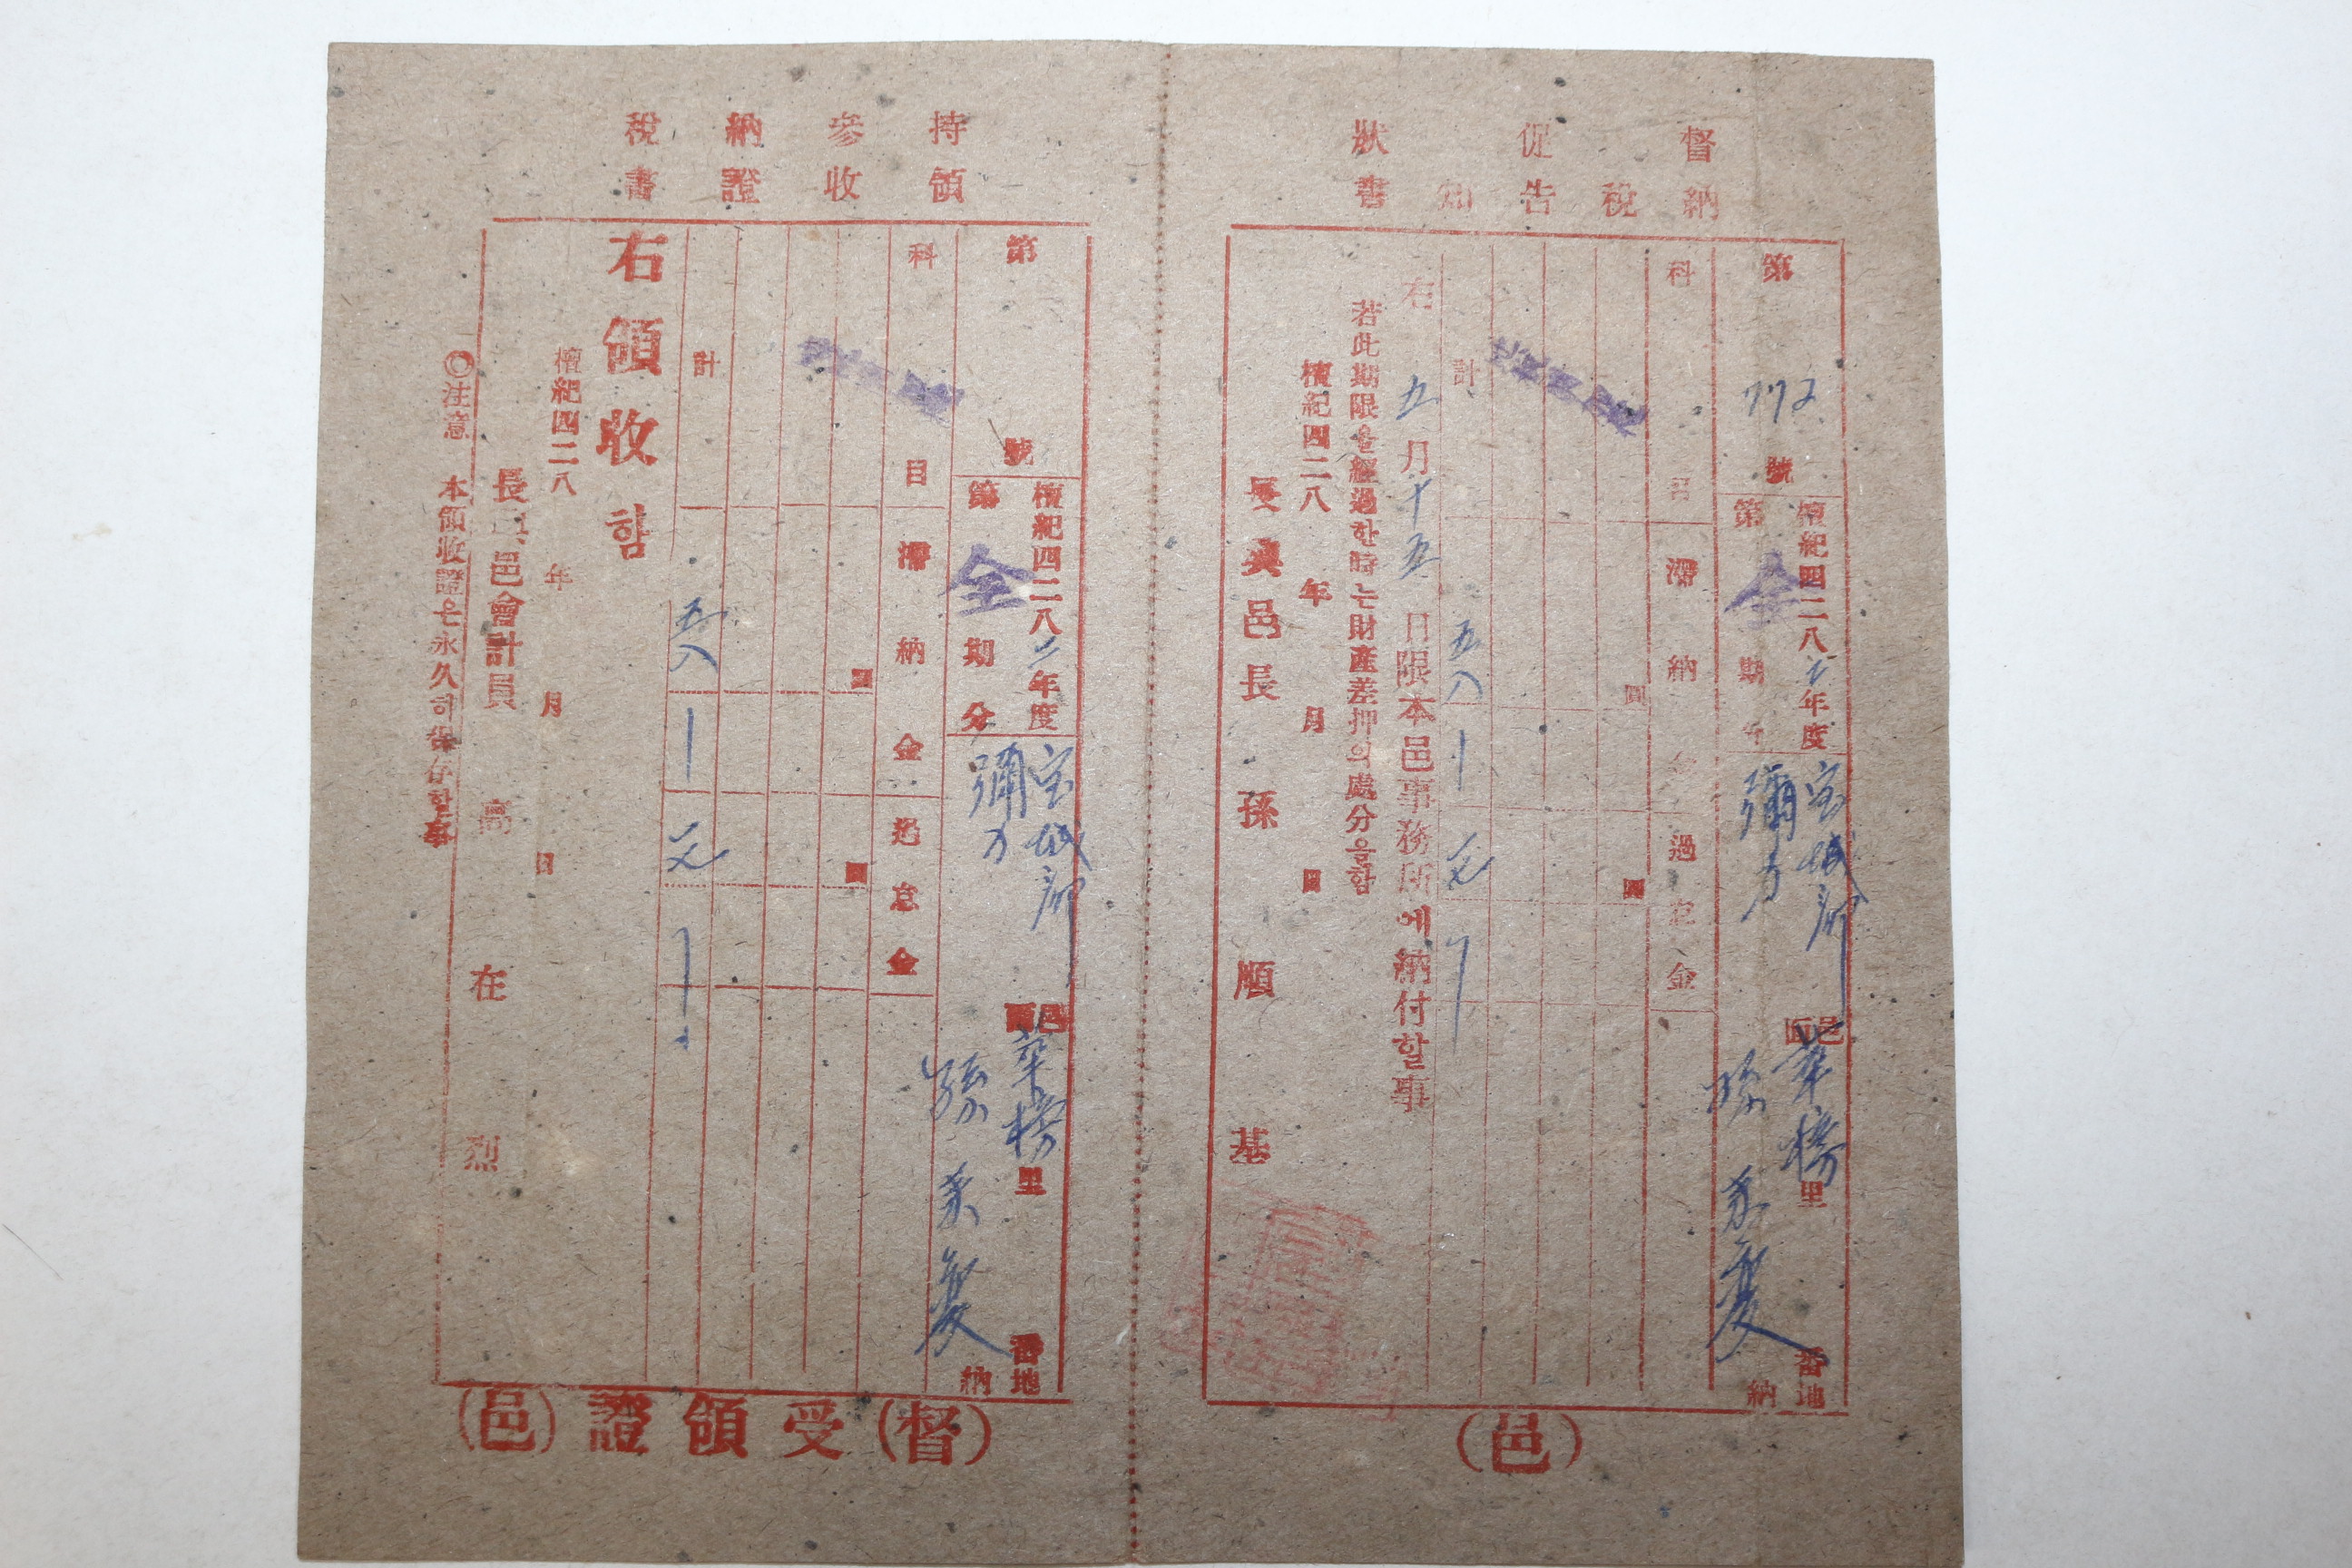 督促狀
納稅告知書
第 772 號
檀紀四二八二年度
第 全 期分
宝城郡
彌力
邑面
里
番地
孫
納
科目
滯納金
過怠金
圓
圓
計
五八一
右五月十五日限本邑事務所에納付할事
若此期限을經過한時는財產差押의處分을함
檀紀四二八 年 月 日
長興邑長 孫順基
(邑)
持參納稅
領收證書
第 號
檀紀四二八二年度
第 全 期分
宝城郡
彌力
邑面
里
番地
孫
納
科目
滯納金
過怠金
圓
圓
計
五八一
右領收함
檀紀四二八 年 月 日
長興邑會計員 高在烈
◎注意 本領收證은永久히保存할事
(督)受領證(邑)